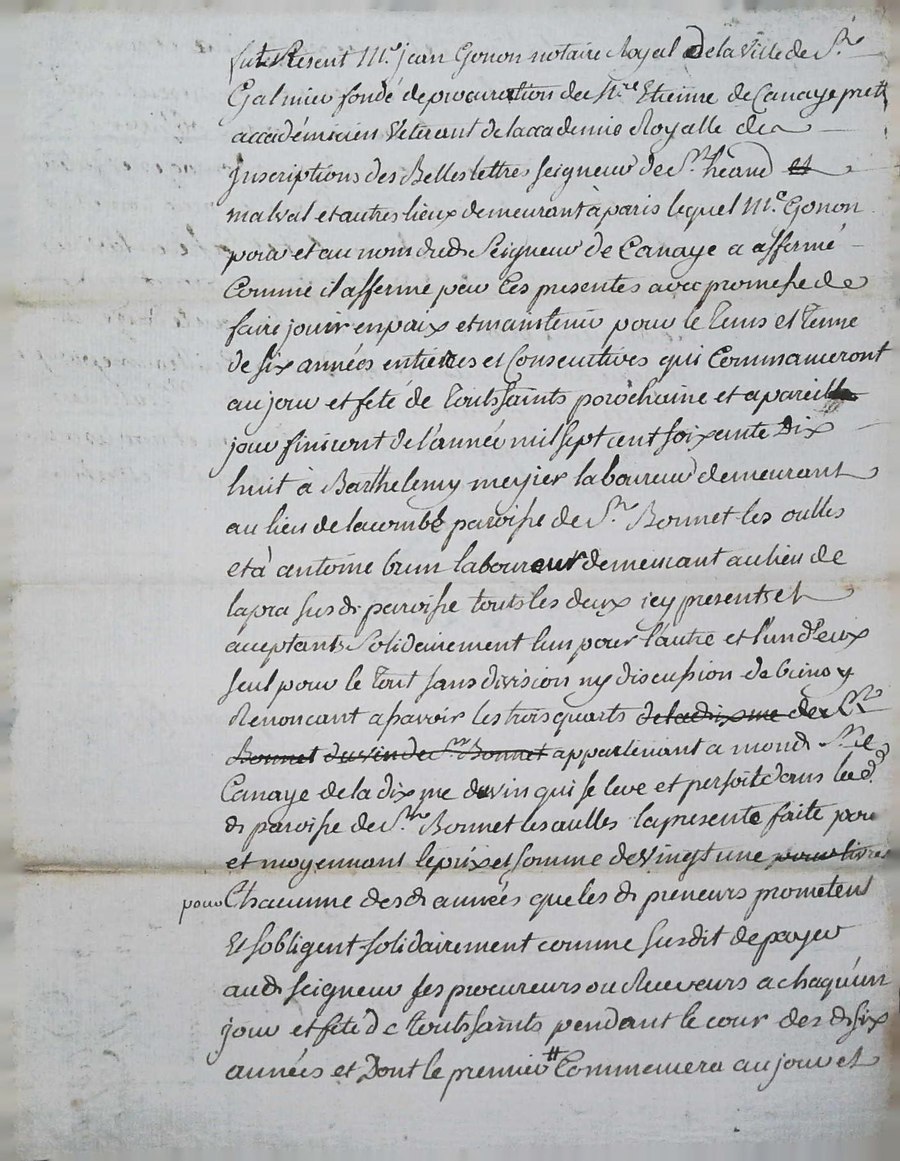 fut Present Me jean Gonon notaire Royal De la Ville de St
Galmier fondé de procuration de Mre Etienne de Canaye prett
accadémicien Vétérant de laccademie Royalle des
Inscriptions des Belles lettres seigneur de St héand et
malval et autres lieux demeurant à paris lequel Me Gonon
pour et au nom dud Seigneur de Canaye a affermé
Comme il afferme par Ces presentes avec promesse de
faire jouir en paix et maintenir pour le tems et terme
de six années entieres et Consecutives qui Commanceront
au jour et feté de Toutssaints porochaine et a pareille
jour finiront de l'année mil sept cent soixente Dix
huit à Barthelemy meyier laboureur demeurant
au lieu de lacombe paroisse de St Bonnet les oulles
et à antoine brun laboureur demeurant au lieu de
lapra susd paroisse touts les deux icy presents et
acceptants Solidairement l'un pour l'autre et l'un d'eux
seul pour le tout sans division ny discussion de biens y
Renoncant a savoir les trois quarts de la dixme de St
Bonnet du vin de St Bonnet appartenant a mond Sr de
Canaye de la dixme du vin qui se leve et persoit dans lad
d paroisse de St Bonnet les aulles la presente faite pour
et moyennant le prix et somme de vingt une pour livres
pour Chacunne desd années que les d preneurs prometent
Et sobligent solidairement comme susdit de payer
aud seigneur ses procureurs ou Receveurs a chaqu'un
jour et fete de Toutssaints pendant le cour des d six
années et Dont le premier Commencera au jour et